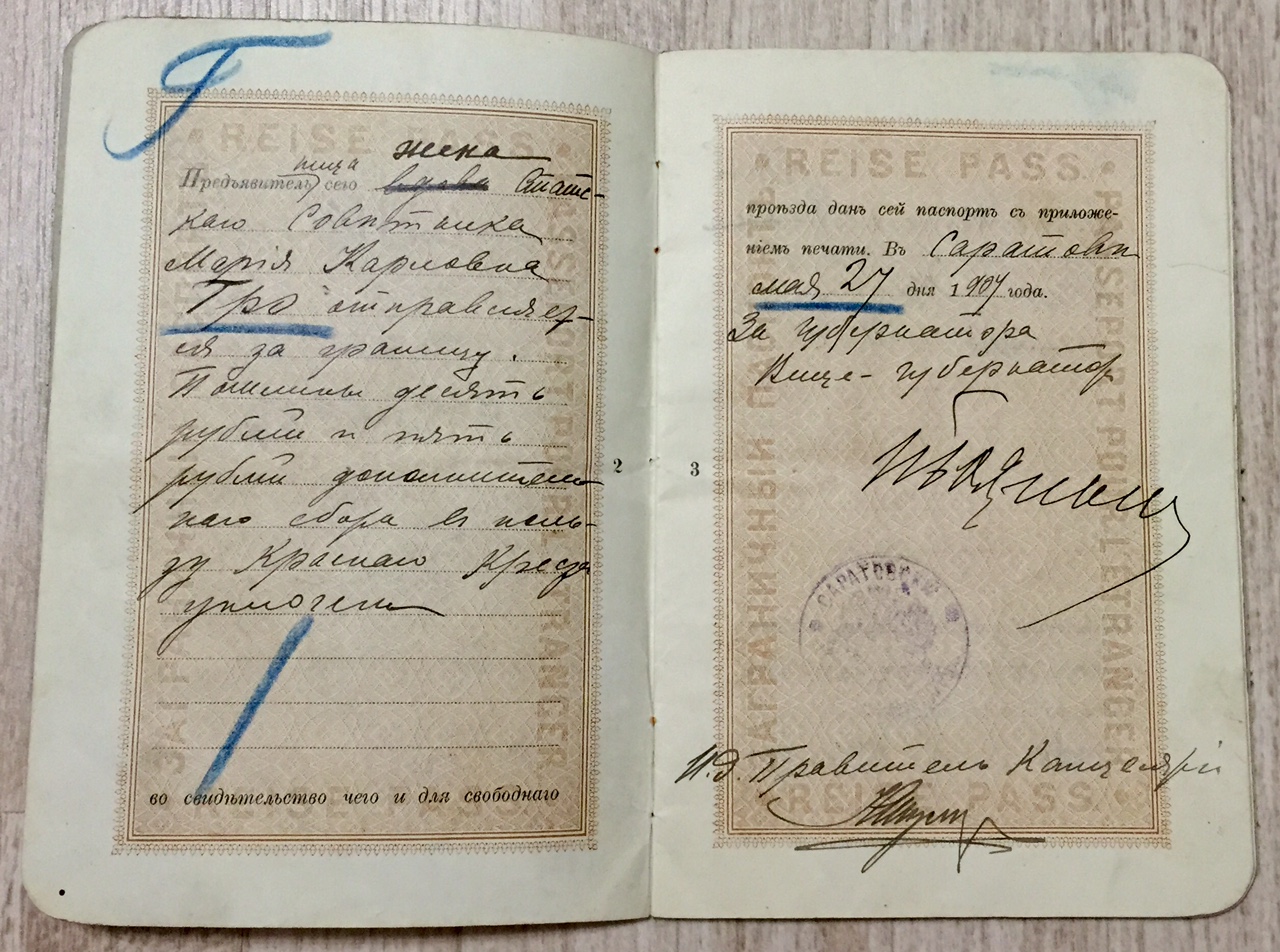 Г
REISE PASS
жена
ница
Предъявитель сего вдова Статс-
каго Совѣтника
Марія Карловна
Гро отправляет-
ся за границу.
Пошлины десять
рублей и пять
рублей дополнитель
наго сбора въ поль-
зу Краснаго Креста
уплочены
во свидѣтельство чего и для свободнаго
2
3
REISE PASS
проѣзда данъ сей паспортъ съ приложе-
ніемъ печати. Въ Саратовѣ
мая 27 дня 1904 года.
За губернатора
Вице-губернаторъ
САРАТОВСКІЙ
И.д. Правитель Канцеляріи
REISE PASS
ЗАГРАНИЧНЫЙ ПАСПОРТЪ
PASSEPORT POUR L'ETRANGER